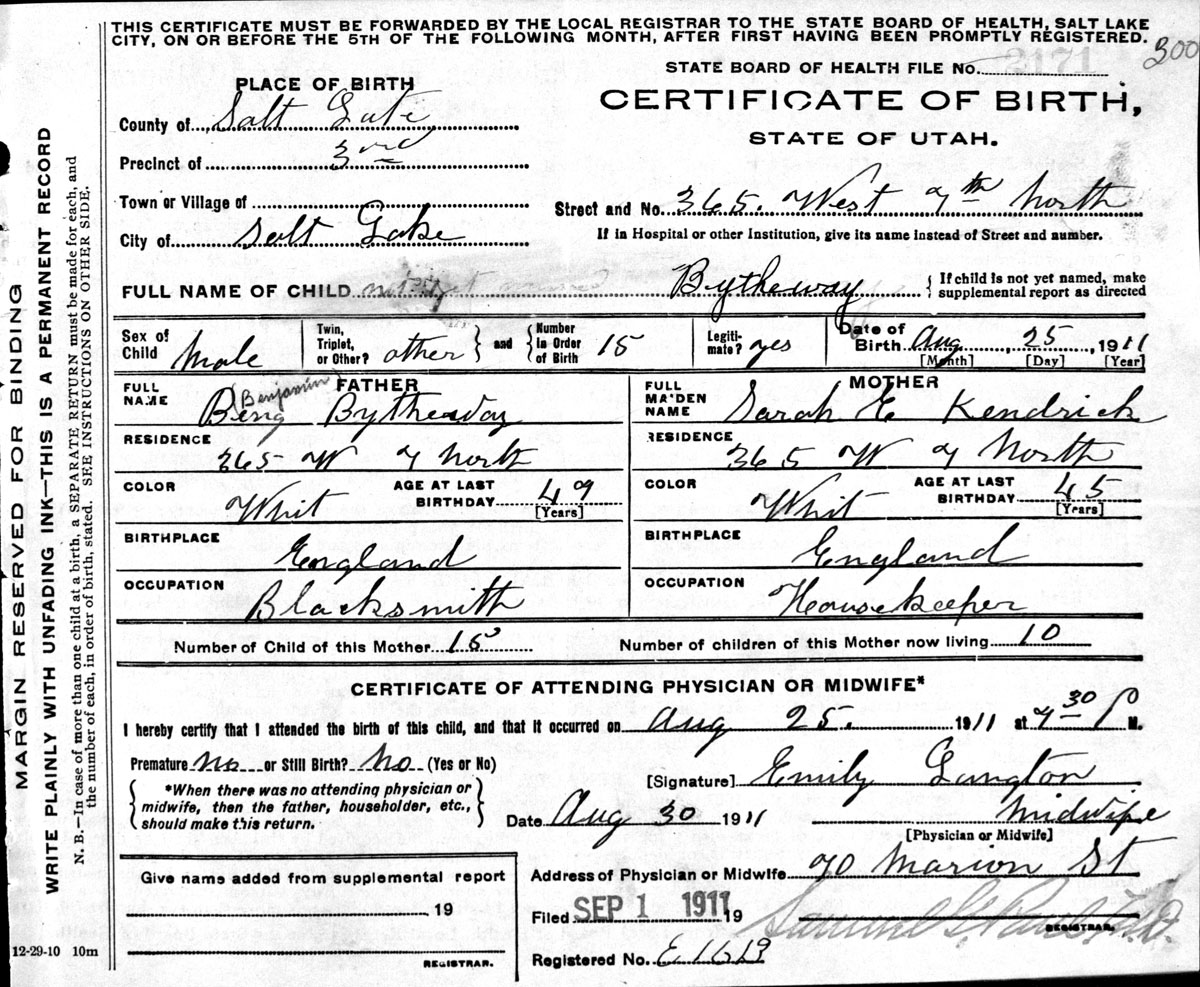 THIS CERTIFICATE MUST BE FORWARDED BY THE LOCAL REGISTRAR TO THE STATE BOARD OF HEALTH, SALT LAKE
CITY, ON OR BEFORE THE 5TH OF THE FOLLOWING MONTH, AFTER FIRST HAVING BEEN PROMPTLY REGISTERED.
300
STATE BOARD OF HEALTH FILE No. 2171
PLACE OF BIRTH
CERTIFICATE OF BIRTH,
STATE OF UTAH.
County of Salt Lake
Precinct of 3rd
Town or Village of
Street and No. 365. West 7th North
City of Salt Lake
If in Hospital or other Institution, give its name instead of Street and number.
FULL NAME OF CHILD not yet named Bytheway { If child is not yet named, make
supplemental report as directed
Sex of Child Male
Twin, Triplet, or Other? other } and { Number in Order of Birth 15
Legiti-mate? yes
Date of Birth Aug 25 1911
[Month] [Day] [Year]
FATHER
FULL NAME Benj Bytheway
Benjamin
RESIDENCE
365 W 7 North
COLOR Whit AGE AT LAST BIRTHDAY 49
[Years]
BIRTHPLACE
England
OCCUPATION
Blacksmith
MOTHER
FULL MAIDEN NAME Sarah E Kendrick
RESIDENCE
365 W 7 North
COLOR Whit AGE AT LAST BIRTHDAY 45
[Years]
BIRTHPLACE
England
OCCUPATION
Housekeeper
Number of Child of this Mother 15 Number of children of this Mother now living 10
CERTIFICATE OF ATTENDING PHYSICIAN OR MIDWIFE*
I hereby certify that I attended the birth of this child, and that it occurred on Aug 25. 1911 at 7 30 P M.
Premature No or Still Birth? No (Yes or No)
*When there was no attending physician or
midwife, then the father, householder, etc.,
should make this return.
[Signature] Emily Langton
Date Aug 30 1911 Midwife
[Physician or Midwife]
Give name added from supplemental report
19
REGISTRAR.
Address of Physician or Midwife 70 Marion St
Filed SEP 1 1911 19
REGISTRAR.
Registered No. E1619
12-29-10 10m
MARGIN RESERVED FOR BINDING
WRITE PLAINLY WITH UNFADING INK—THIS IS A PERMANENT RECORD
N. B.—In case of more than one child at a birth, a SEPARATE RETURN must be made for each, and
the number of each, in order of birth, stated. SEE INSTRUCTIONS ON OTHER SIDE.